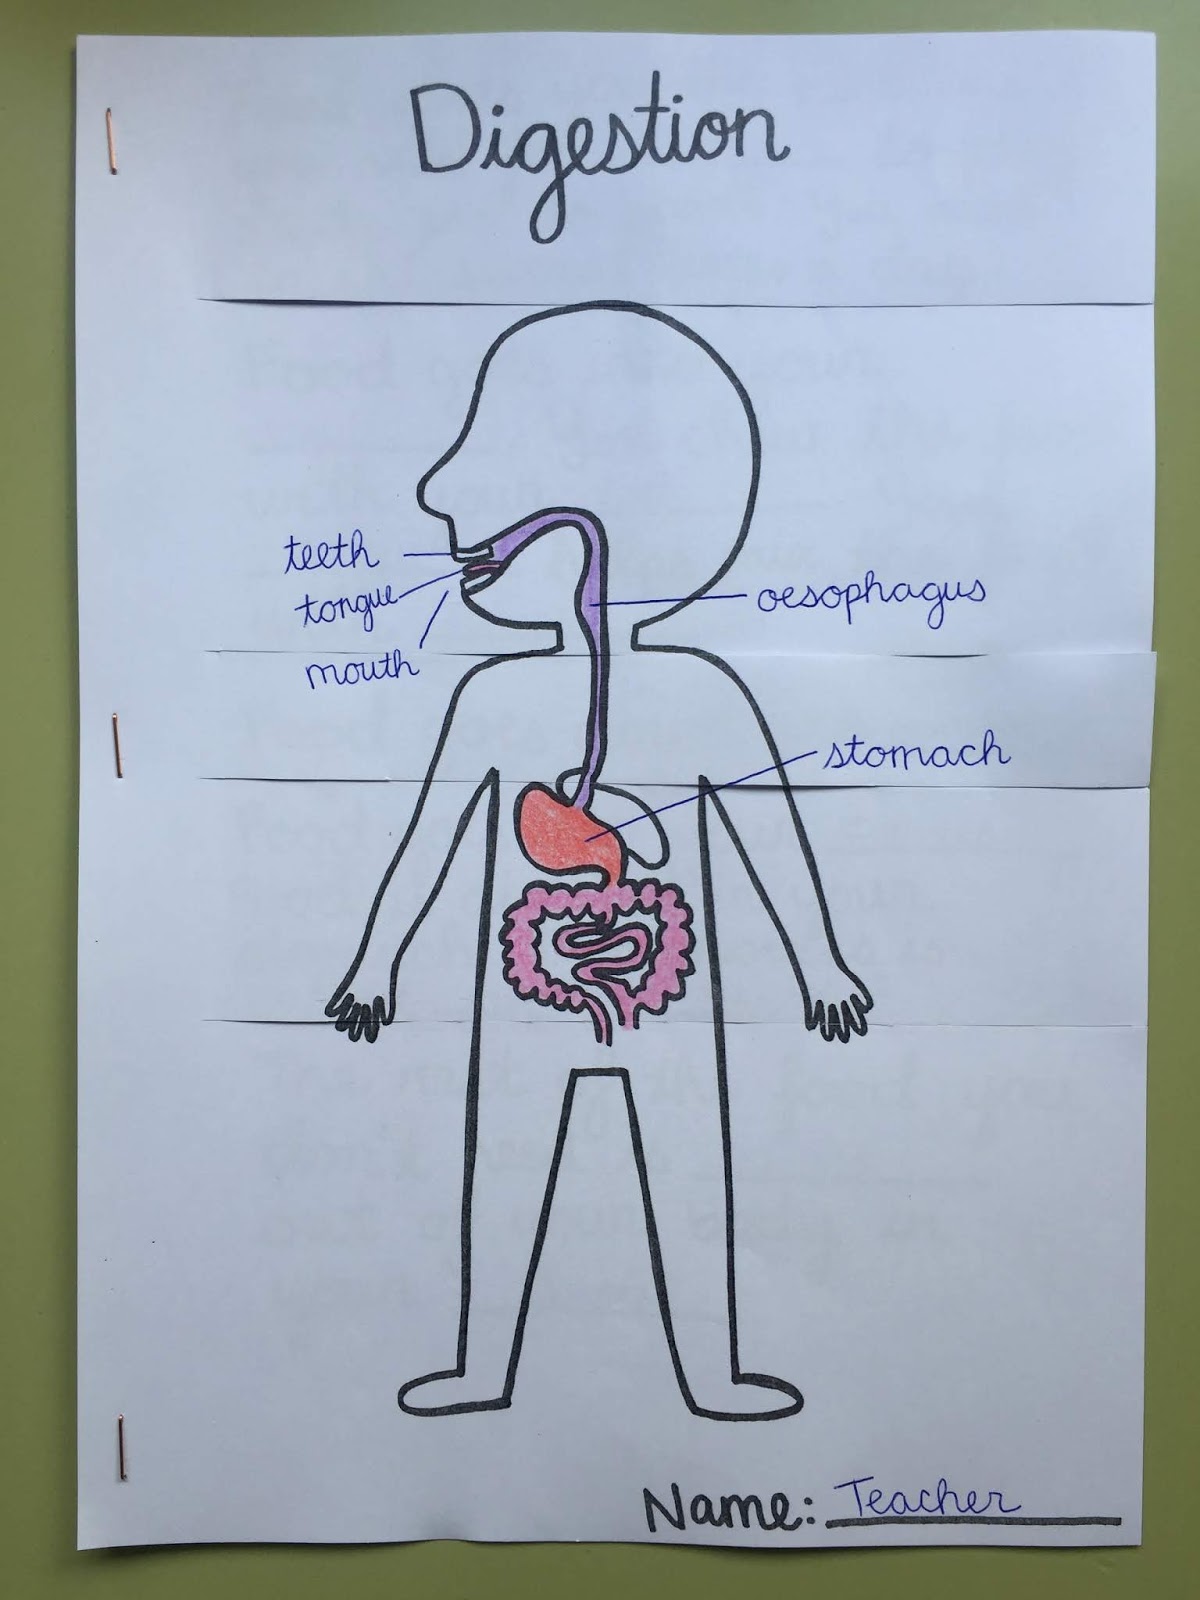 Digestion
teeth
tongue
mouth
oesophagus
stomach
Name: Teacher